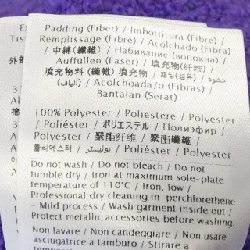 Padding (Fiber) / Imbottitura (Fibre) /
Remplissage (Fibre) / Acolchado (Fibra)
/ 中綿 (繊維) / Набивание (волокна) /
Auffüllen (Faser) / 填充物(纤维) /
填充物料 (纖維) 填充物 /
/ Acolchoado/a (Fibras) /
Bantalan (Serat)
100% Polyester / Poliestere / Polyester
/ Poliéster / ポリエステル / Полиэфир /
Polyester / 聚酯纤维 / 聚酯纖維 /
폴리에스터 / بوليستر / Poliéster / Polyester
Do not wash / Do not bleach / Do not
tumble dry / Iron at maximum sole-plate
temperature of 110°C / Iron, low /
Professional dry cleaning in perchlorethene
– Mild process / Wash garment inside out /
Protect metallic accessories before washing.
Non lavare / Non candeggiare / Non usare
asciugatrice a tamburo / Stirare a